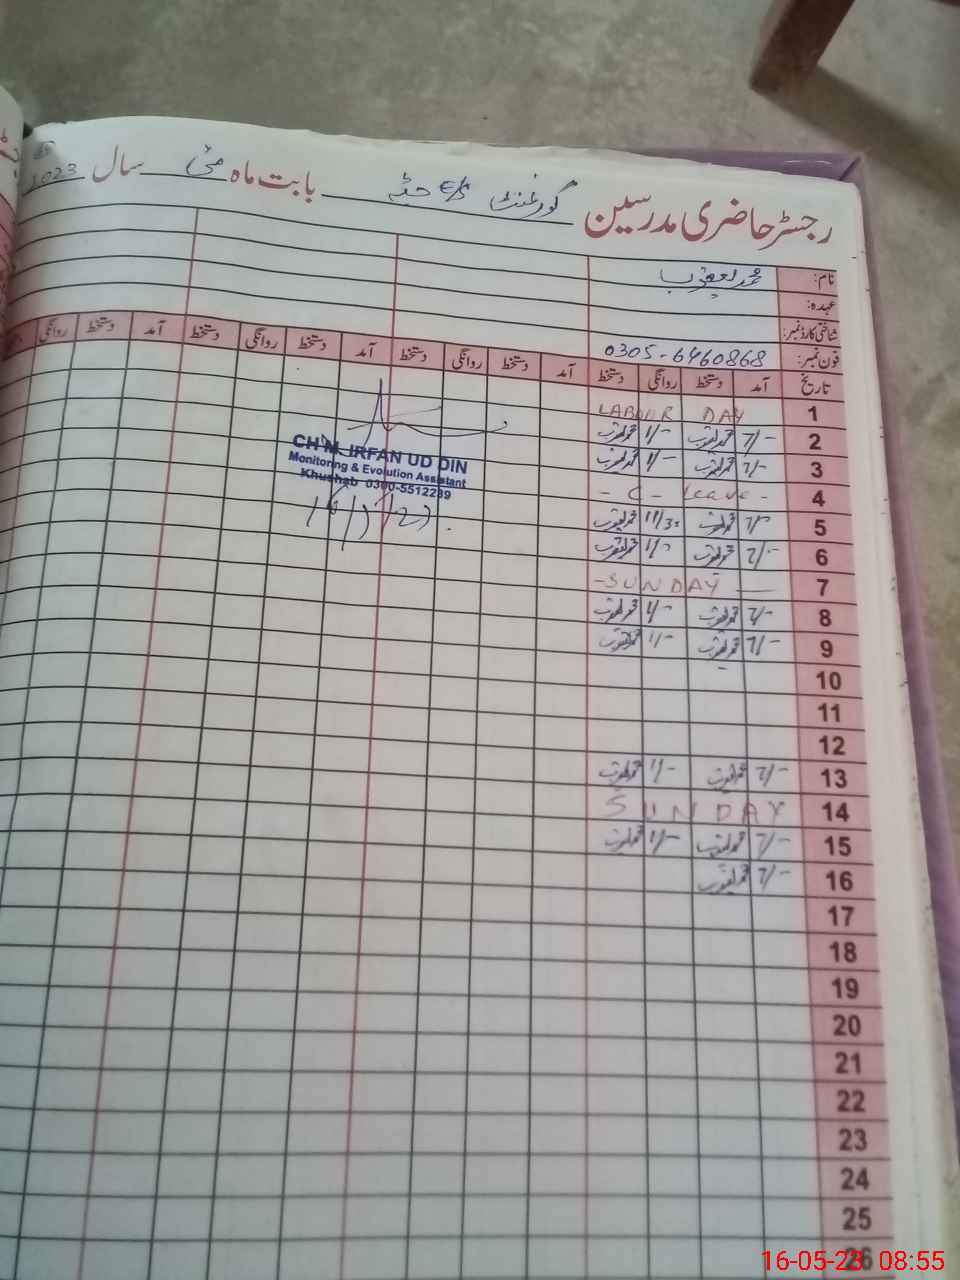 رجسٹر حاضری مدرسین گورنمنٹ بابت ماہ مئی سال 2023
نام: محمد یعقوب
عہدہ:
شناختی کارڈ نمبر:
فون نمبر: 0305-6460868
تاریخ آمد دستخط روانگی دستخط آمد دستخط روانگی دستخط آمد دستخط روانگی دستخط آمد دستخط روانگی
1 LABOUR DAY
2 7/- محمد یعقوب 1/- محمد یعقوب
3 7/- محمد یعقوب 1/- محمد یعقوب
4 - C - leave -
5 7/- محمد یعقوب 11/30 محمد یعقوب
6 7/- محمد یعقوب 1/- محمد یعقوب
7 - SUNDAY —
8 7/- محمد یعقوب 1/- محمد یعقوب
9 7/- محمد یعقوب 1/- محمد یعقوب
10
11
12
13 7/- محمد یعقوب 1/- محمد یعقوب
14 SUNDAY
15 7/- محمد یعقوب 1/- محمد یعقوب
16 7/- محمد یعقوب
17
18
19
20
21
22
23
24
25
26
CH M. IRFAN UD DIN
Monitoring & Evolution Assistant
Khushab 0300-5512239
16-05-23 08:55